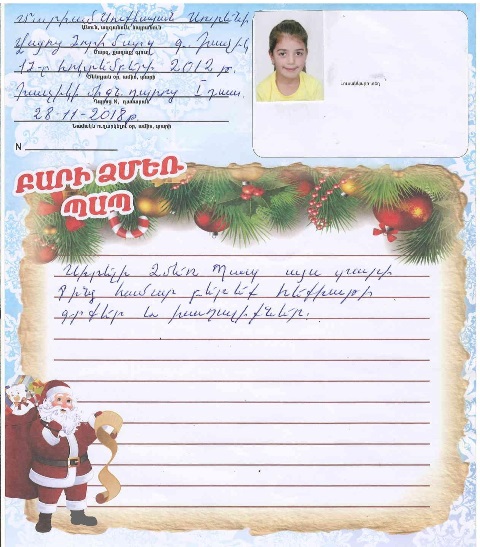 Մարիամ Սուքիասյան Սուրենի
Անուն, ազգանուն, հայրանուն
Վայոց Ձորի մարզ գ. Խաչիկ
Մարզ, քաղաք, գյուղ
17-ը հոկտեմբերի 2012 թ.
Ծննդյան օր, ամիս, տարի
Խաչիկի միջն. դպրոց I դաս.
Դպրոց N, դասարան
28-11-2018թ
Նամակն ուղարկելու օր, ամիս, տարի
N
Լուսանկարի տեղ
ԲԱՐԻ ՁՄԵՌ
ՊԱՊ
Սիրելի Ձմեռ Պապ այս տարի
ինձ համար բերեք հեքիաթի
գրքեր և խաղալիքներ։